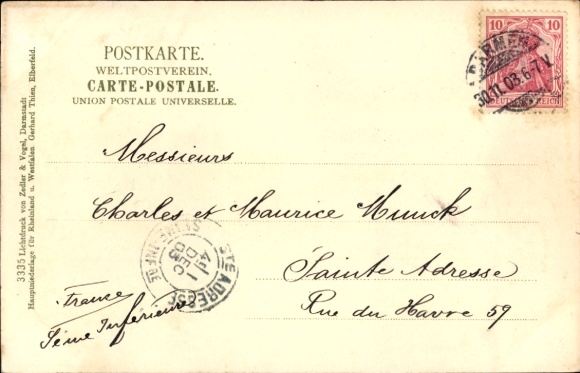 POSTKARTE.
WELTPOSTVEREIN.
CARTE-POSTALE.
UNION POSTALE UNIVERSELLE.
10 10
DEUTSCHES REICH
BARMEN
30.11.03.6-7.V.
Messieurs
Charles et Maurice Munck
Sainte Adresse
Rue du Havre 59
France
Seine Inférieure
STE ADRESSE
1
DEC
03
SEINE-INFRE
3335 Lichtdruck von Zedler & Vogel, Darmstadt
Hauptniederlage für Rheinland u. Westfalen Gerhard Thien, Elberfeld.